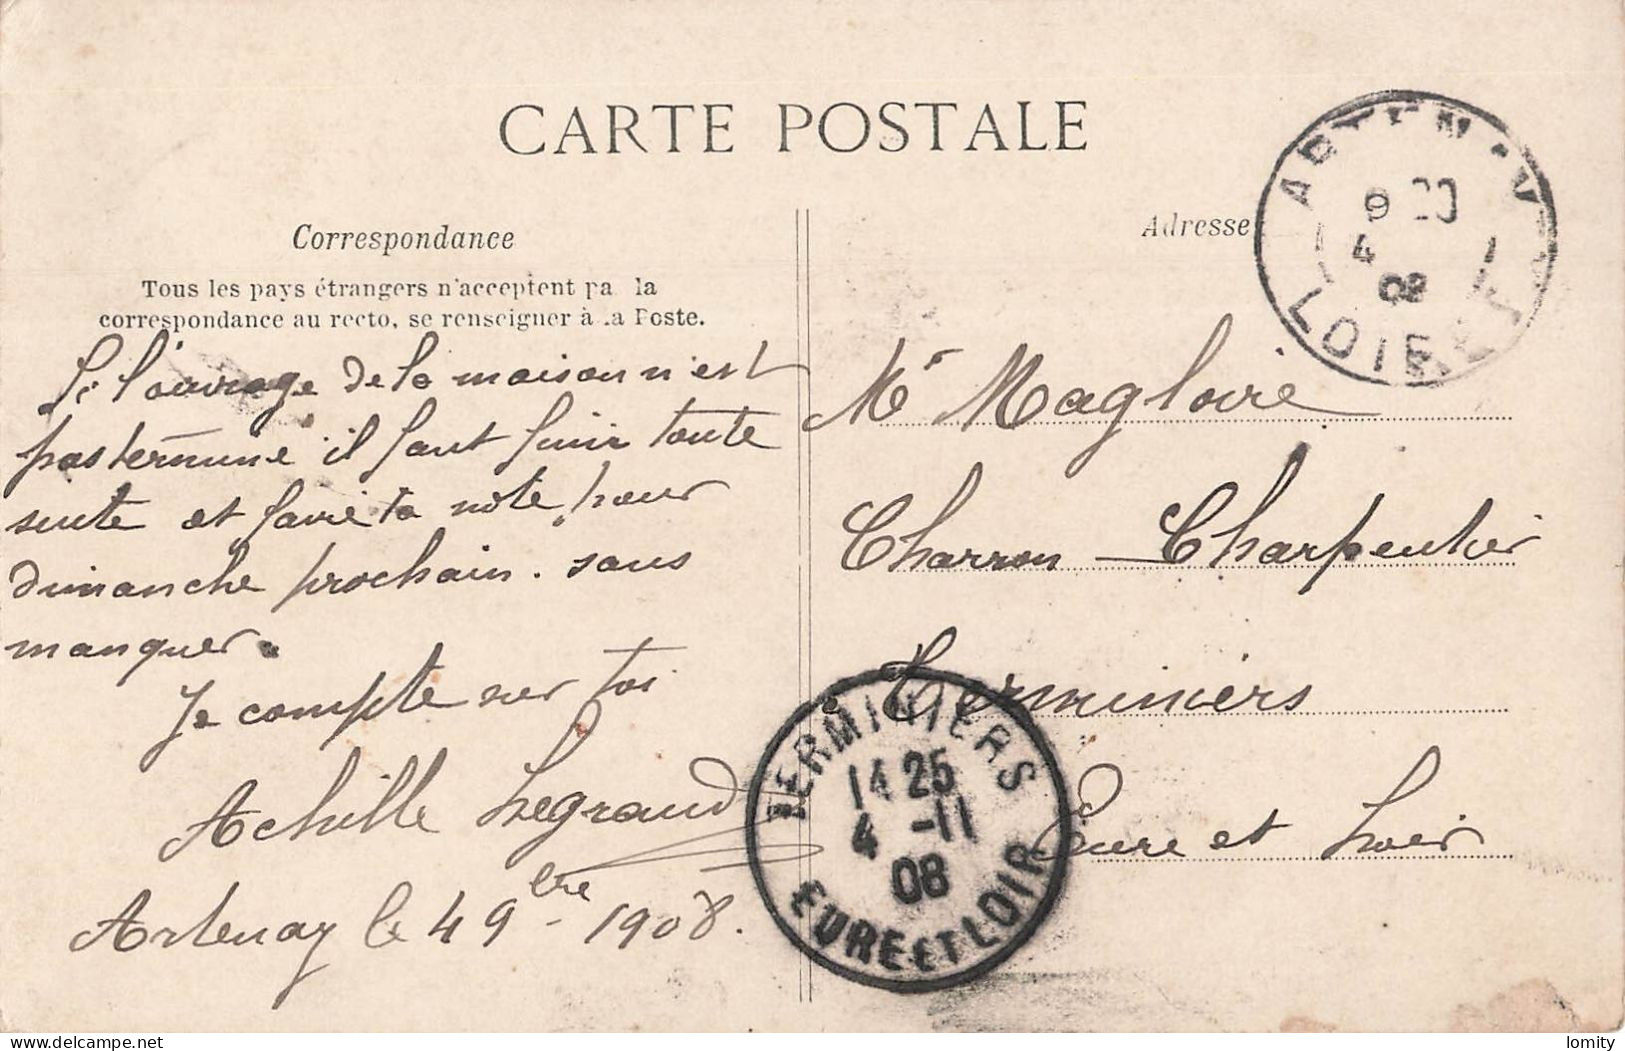 CARTE POSTALE
Correspondance
Tous les pays étrangers n'acceptent pa la
correspondance au recto, se renseigner à la Poste.
Si l'ouvrage de la maison n'est
pas terminé il faut finir toute
suite et faire ta note pour
dimanche prochain. sans
manquer.
Je compte sur toi
Achille Legrand
Artenay le 4 9bre 1908.
Adresse
ARTENAY
9
4
08
LOIRET
Mr Magloire
Charron - Charpentier
Terminiers
Eure et Loir
TERMINIERS
14 25
4 -11
08
EURE ET LOIR
delcampe.net
lomity